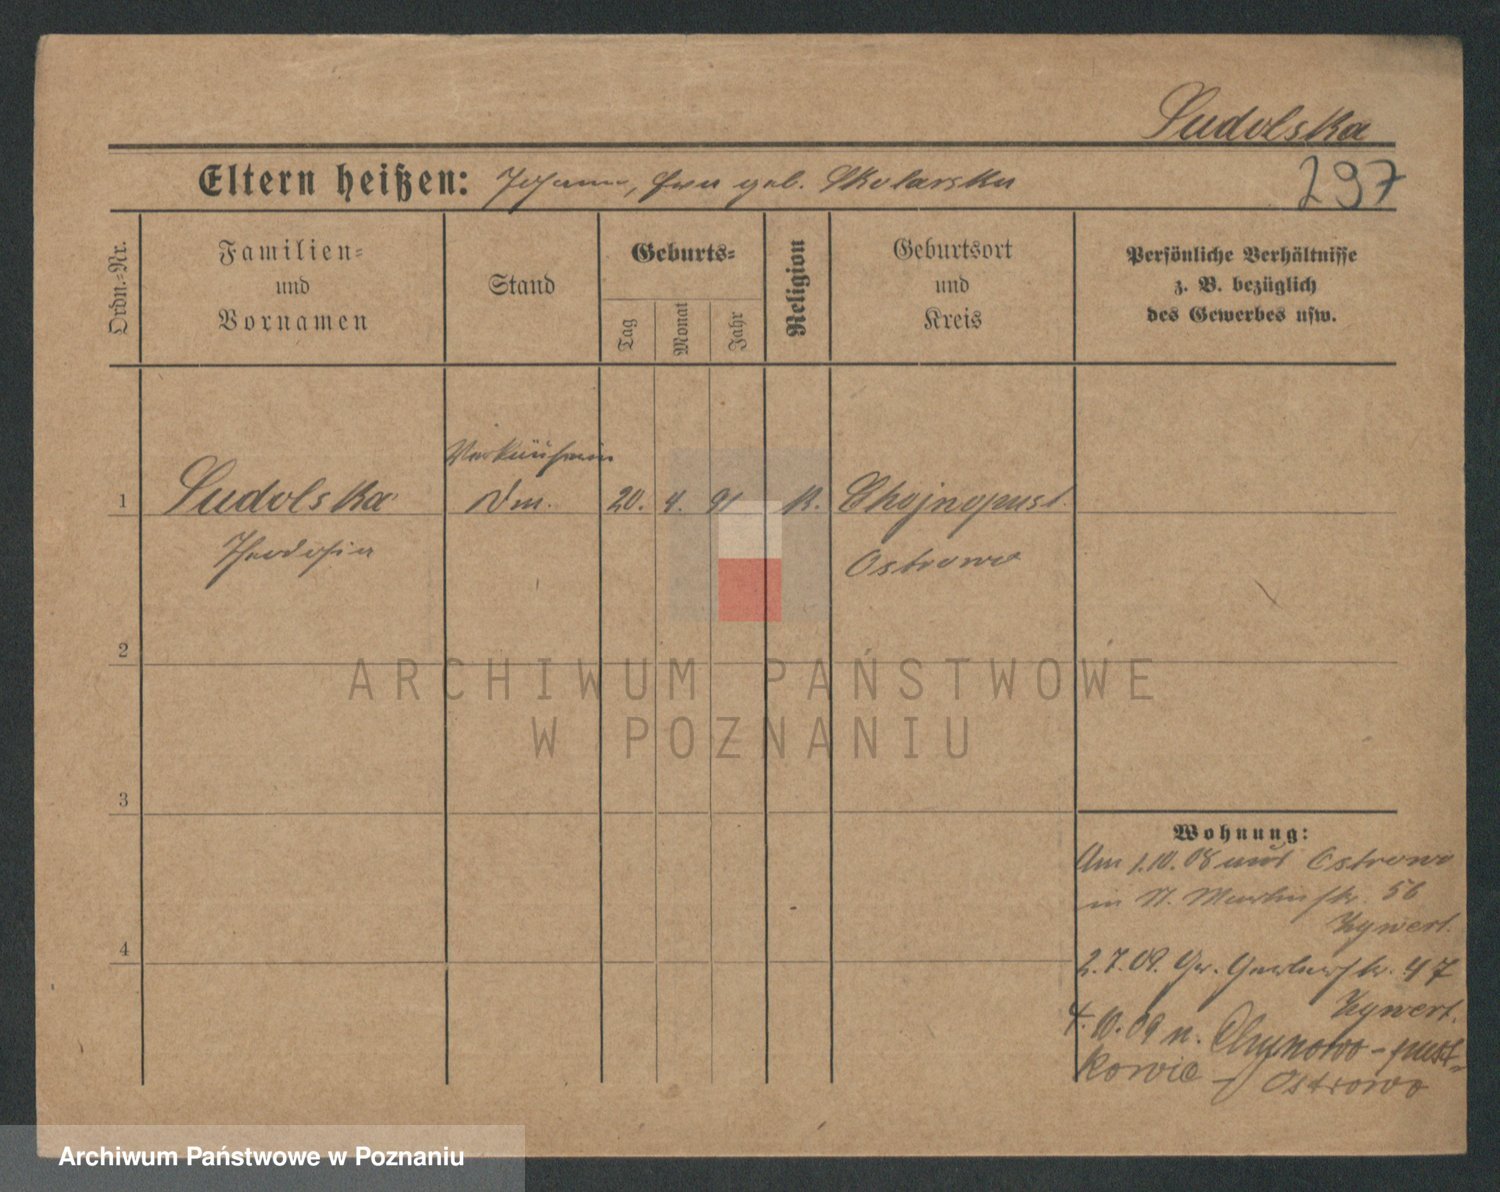 Sudolska
Eltern heißen: Johann, Eva geb. Skolarska
297
Ordn.-Nr.
Familien-
und
Vornamen
Stand
Geburts-
Tag
Monat
Jahr
Religion
Geburtsort
und
Kreis
Persönliche Verhältnisse
z. B. bezüglich
des Gewerbes usw.
Verkäuferin
1 Sudolska Dm. 20. 4. 91 K. Chojnopust.
Theodosia Ostrowo
2
3
4
Wohnung:
Am 1.10.08 aus Ostrowo
in St. Martinstr. 56
2.7.09. Gr. Gerberstr. 47
4.10.09 n. Chynowo-pust-
kowie - Ostrowo
ARCHIWUM PAŃSTWOWE
W POZNANIU
Archiwum Państwowe w Poznaniu